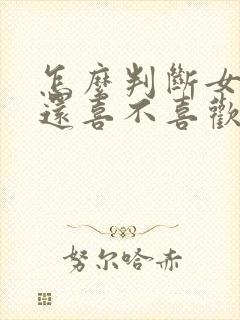 怎麼判斷女
還喜不喜歡
努尔哈赤